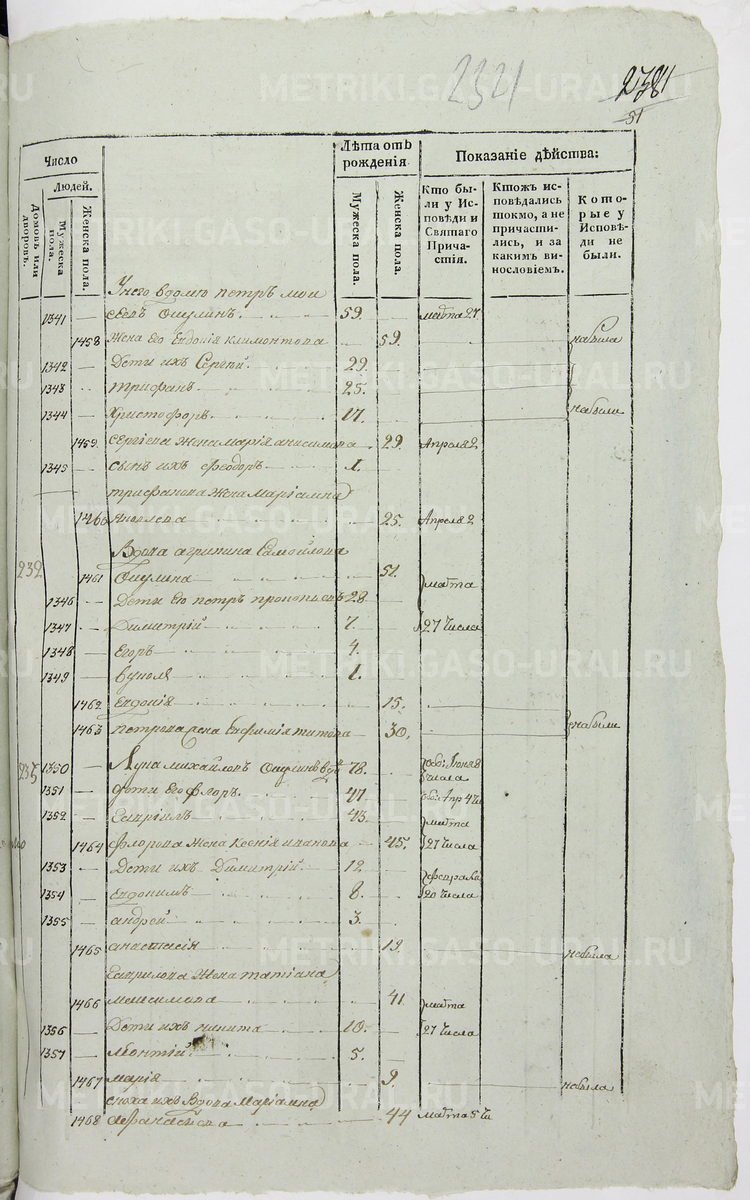 2321
2381
51
Число
Людей.
Домовъ или дворовъ.
Мужеска пола.
Женска пола.
Лѣта отъ рожденія
Мужеска пола.
Женска пола.
Показаніе дѣйства:
Кто бы-
ли у Ис-
повѣди и
Святаго
Прича-
стія.
Ктожъ ис-
повѣдались
токмо, а не
причасти-
лись, и за
какимъ ви-
нословіемъ.
Кото-
рые у
Исповѣ-
ди не
были.
Унего вдомѣ петръ мои
1341 — сеевъ 59. марта 27
1458 жена Его Евдокія климонтова 59. небыла
1342 — Дети ихъ Сергей 29.
1343 — трифанъ 25.
1344 — Христофоръ 17. небыли
1459 Сергіева жена марія анисимова 29 Апреля 2
1345 — сынъ ихъ феодоръ 1.
трифанова жена Маріамна
1460 Яковлева 25. Апреля 2
232 Вдова агрипина Самойлова
1461 51. марта
1346 — Дети Ею петръ 28
1347 — Димитрій 7. 27 числа
1348 — Егоръ 4.
1349 — вукола 1.
1462 Евдокія 15.
1463 петрова жена Ефимія титова 30. небыли
233 1350 — Лука михайловъ 78. Июня 8 числа
1351 — дети Его флоръ 47. Апр 4 чи
1352 — Гаврилъ 43. марта
1464 флорова жена Ксенія иванова 45. 27 числа
1353 — Дети ихъ Димитрій 12. февраля
1354 — Евдокимъ 8. 20 числа
1355 — андрей 3.
1465 анастасія 12 небыла
Гаврилова жена татіана
1466 максимова 41 марта
1356 — Дети ихъ никита 10. 27 числа
1357 — Леонтій 5.
1467 марія 9. небыла
сноха ихъ Вдова Маріамна
1468 Афанасьева 44 марта 5 чи
METRIKI.GASO-URAL.RU